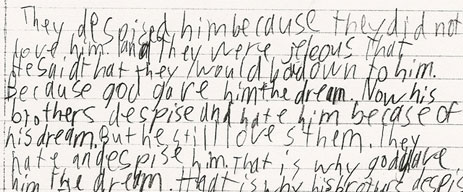 They despised him because they did not
love him. and they were jeleous that
He said that they would bow down to him.
Because god gave him the dream. Now his
brothers despise and hate him becase of
his dream. But he still love s them. They
hate an despise him. That is why god gave
him The dream. that is why his